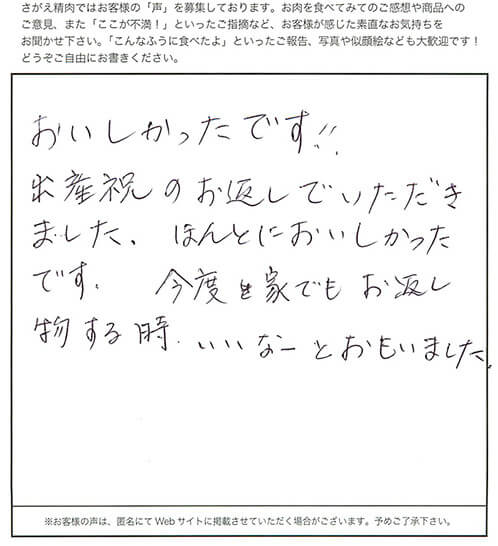 さがえ精肉ではお客様の「声」を募集しております。お肉を食べてみてのご感想や商品への
ご意見、また「ここが不満！」といったご指摘など、お客様が感じた素直なお気持ちを
お聞かせ下さい。「こんなふうに食べたよ」といったご報告、写真や似顔絵なども大歓迎です！
どうぞご自由にお書きください。
おいしかったです!!
出産祝のお返しでいただき
ました、ほんとにおいしかった
です、今度家でもお返し
物する時、いいなーとおもいました。
※お客様の声は、匿名にてWebサイトに掲載させていただく場合がございます。予めご了承下さい。